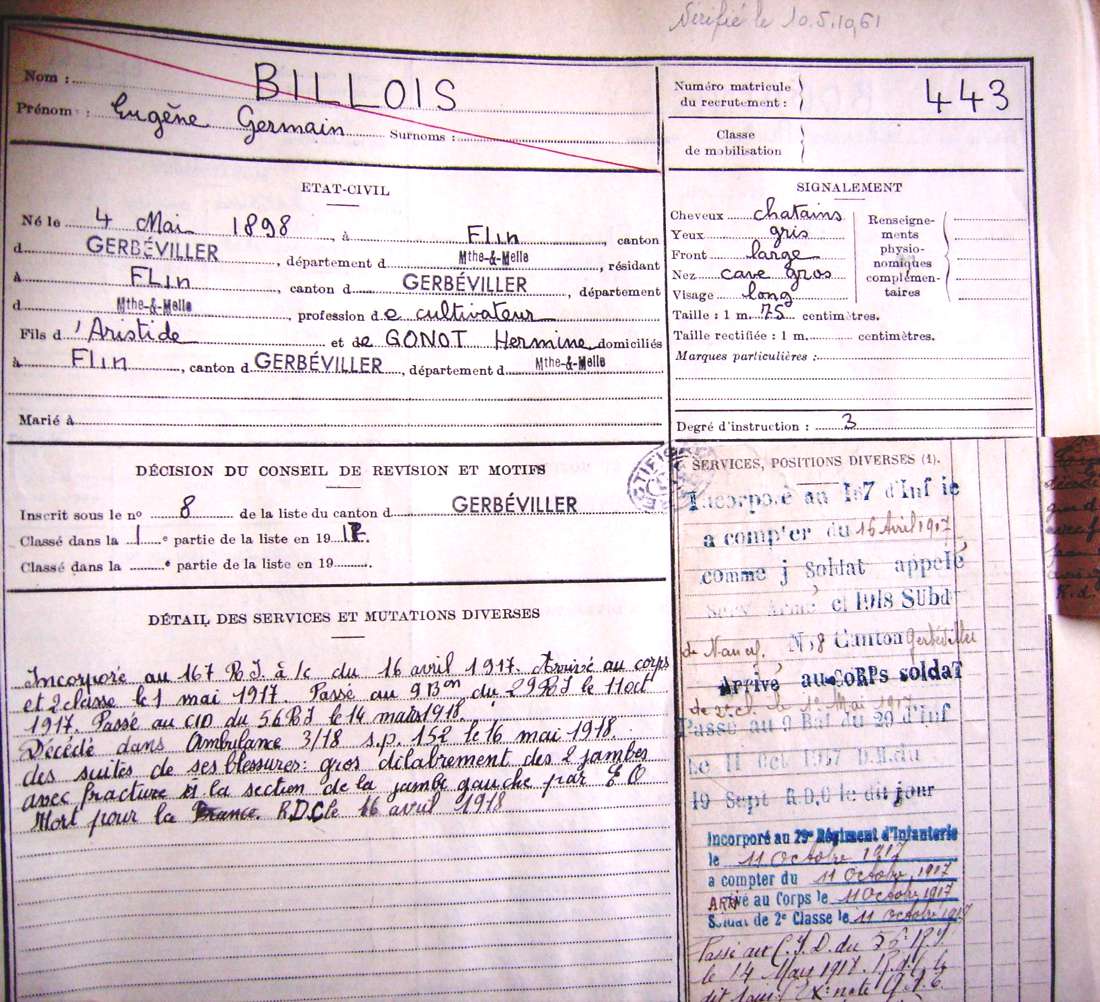 Vérifié le 10.5.1961
Nom : BILLOIS
Prénom : Eugène Germain Surnoms :
Numéro matricule
du recrutement : 443
Classe
de mobilisation
ETAT-CIVIL
Né le 4 Mai 1898 à Flin, canton
d GERBÉVILLER, département d Mthe-&-Melle, résidant
à FLin, canton d GERBÉVILLER, département
d Mthe-&-Melle, profession de cultivateur
Fils d'Aristide et de GONOT Hermine domiciliés
à Flin, canton d GERBÉVILLER, département d Mthe-&-Melle
Marié à
SIGNALEMENT
Cheveux chatains
Yeux gris
Front large
Nez cave gros
Visage long
Renseigne-
ments
physio-
nomiques
complémen-
taires
Taille : 1 m. 75 centimètres.
Taille rectifiée : 1 m. centimètres.
Marques particulières :
Degré d'instruction : 3
DÉCISION DU CONSEIL DE REVISION ET MOTIFS
Inscrit sous le no 8 de la liste du canton d GERBÉVILLER
Classé dans la 1 e partie de la liste en 1917.
Classé dans la e partie de la liste en 19 .
DÉTAIL DES SERVICES ET MUTATIONS DIVERSES
Incorporé au 167 RI à /c du 16 avril 1917. Arrivé au corps
et 2 classe le 1 mai 1917. Passé au 9 Bon du 29 RI le 11 oct
1917. Passé au CID du 56 RI le 14 mars 1918.
Décédé dans Ambulance 3/18 s.p. 152 le 16 mai 1918.
des suites de ses blessures: gros délabrement des 2 jambes
avec fracture et la section de la jambe gauche par EO
Mort pour la France. R.D.C le 16 avril 1918
SERVICES, POSITIONS DIVERSES (1).
Incorporé au 167 d'Inf ie
a compter du 16 Avril 1917
comme j Soldat appelé
Serv. Armé cl 1918 SUbd
de Nancy. N° 8 Canton Gerbéviller
Arrivé au CORPS soldat
de 2e cl. le 1e Mai 1917
Passé au 9 Bat du 29 d'inf
le 11 Oct 1917 D.M. du
19 Sept R.D.C le dit jour
Incorporé au 29e Régiment d'Infanterie
le 11 Octobre 1917
a compter du 11 Octobre 1917
ARRivé au Corps le 11 Octobre 1917
Soldat de 2e Classe le 11 octobre 1917
Passé au C.I.D. du 56e R.I.
le 14 Mars 1917.
dit jour. Ex: note